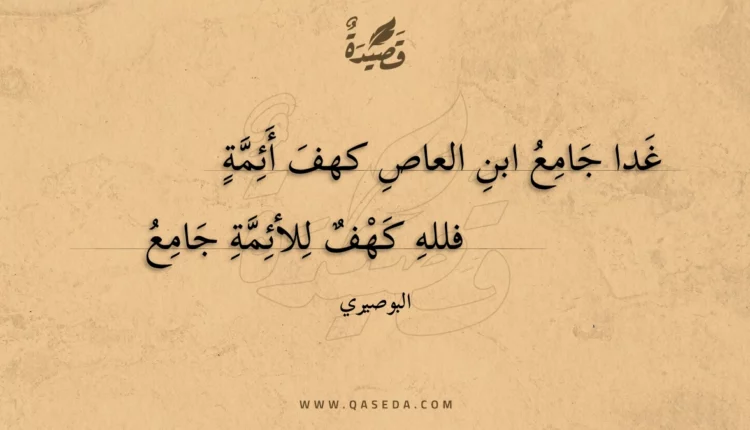 قَصِيْدَةٌ
غَدا جَامِعُ ابنِ العاصِ كهفَ أَئِمَّةٍ
فللهِ كَهْفٌ لِلأئِمَّةِ جَامِعُ
البوصيري
WWW.QASEDA.COM